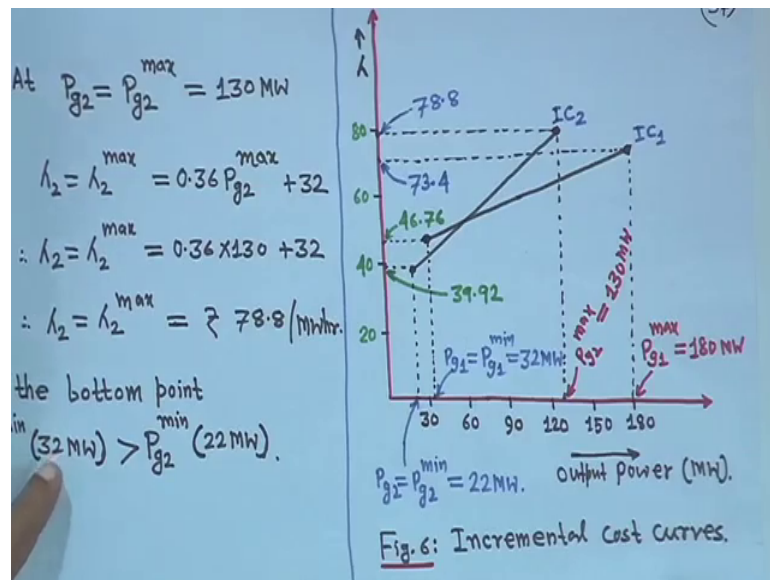 At Pg2 = Pg2^max = 130 MW
λ2 = λ2^max = 0.36 Pg2^max + 32
∴ λ2 = λ2^max = 0.36 × 130 + 32
∴ λ2 = λ2^max = ₹ 78.8/Mwhr.
the bottom point
in (32 MW) > Pg2^min (22 MW).
↑ λ
78.8
IC2
80
IC1
73.4
60
46.76
40
39.92
20
Pg1 = Pg1^min = 32 MW.
Pg2^max = 130 MW
Pg1^max = 180 MW
30 60 90 120 150 180
Pg2 = Pg2^min = 22 MW.
output power (MW).
Fig. 6: Incremental cost curves.